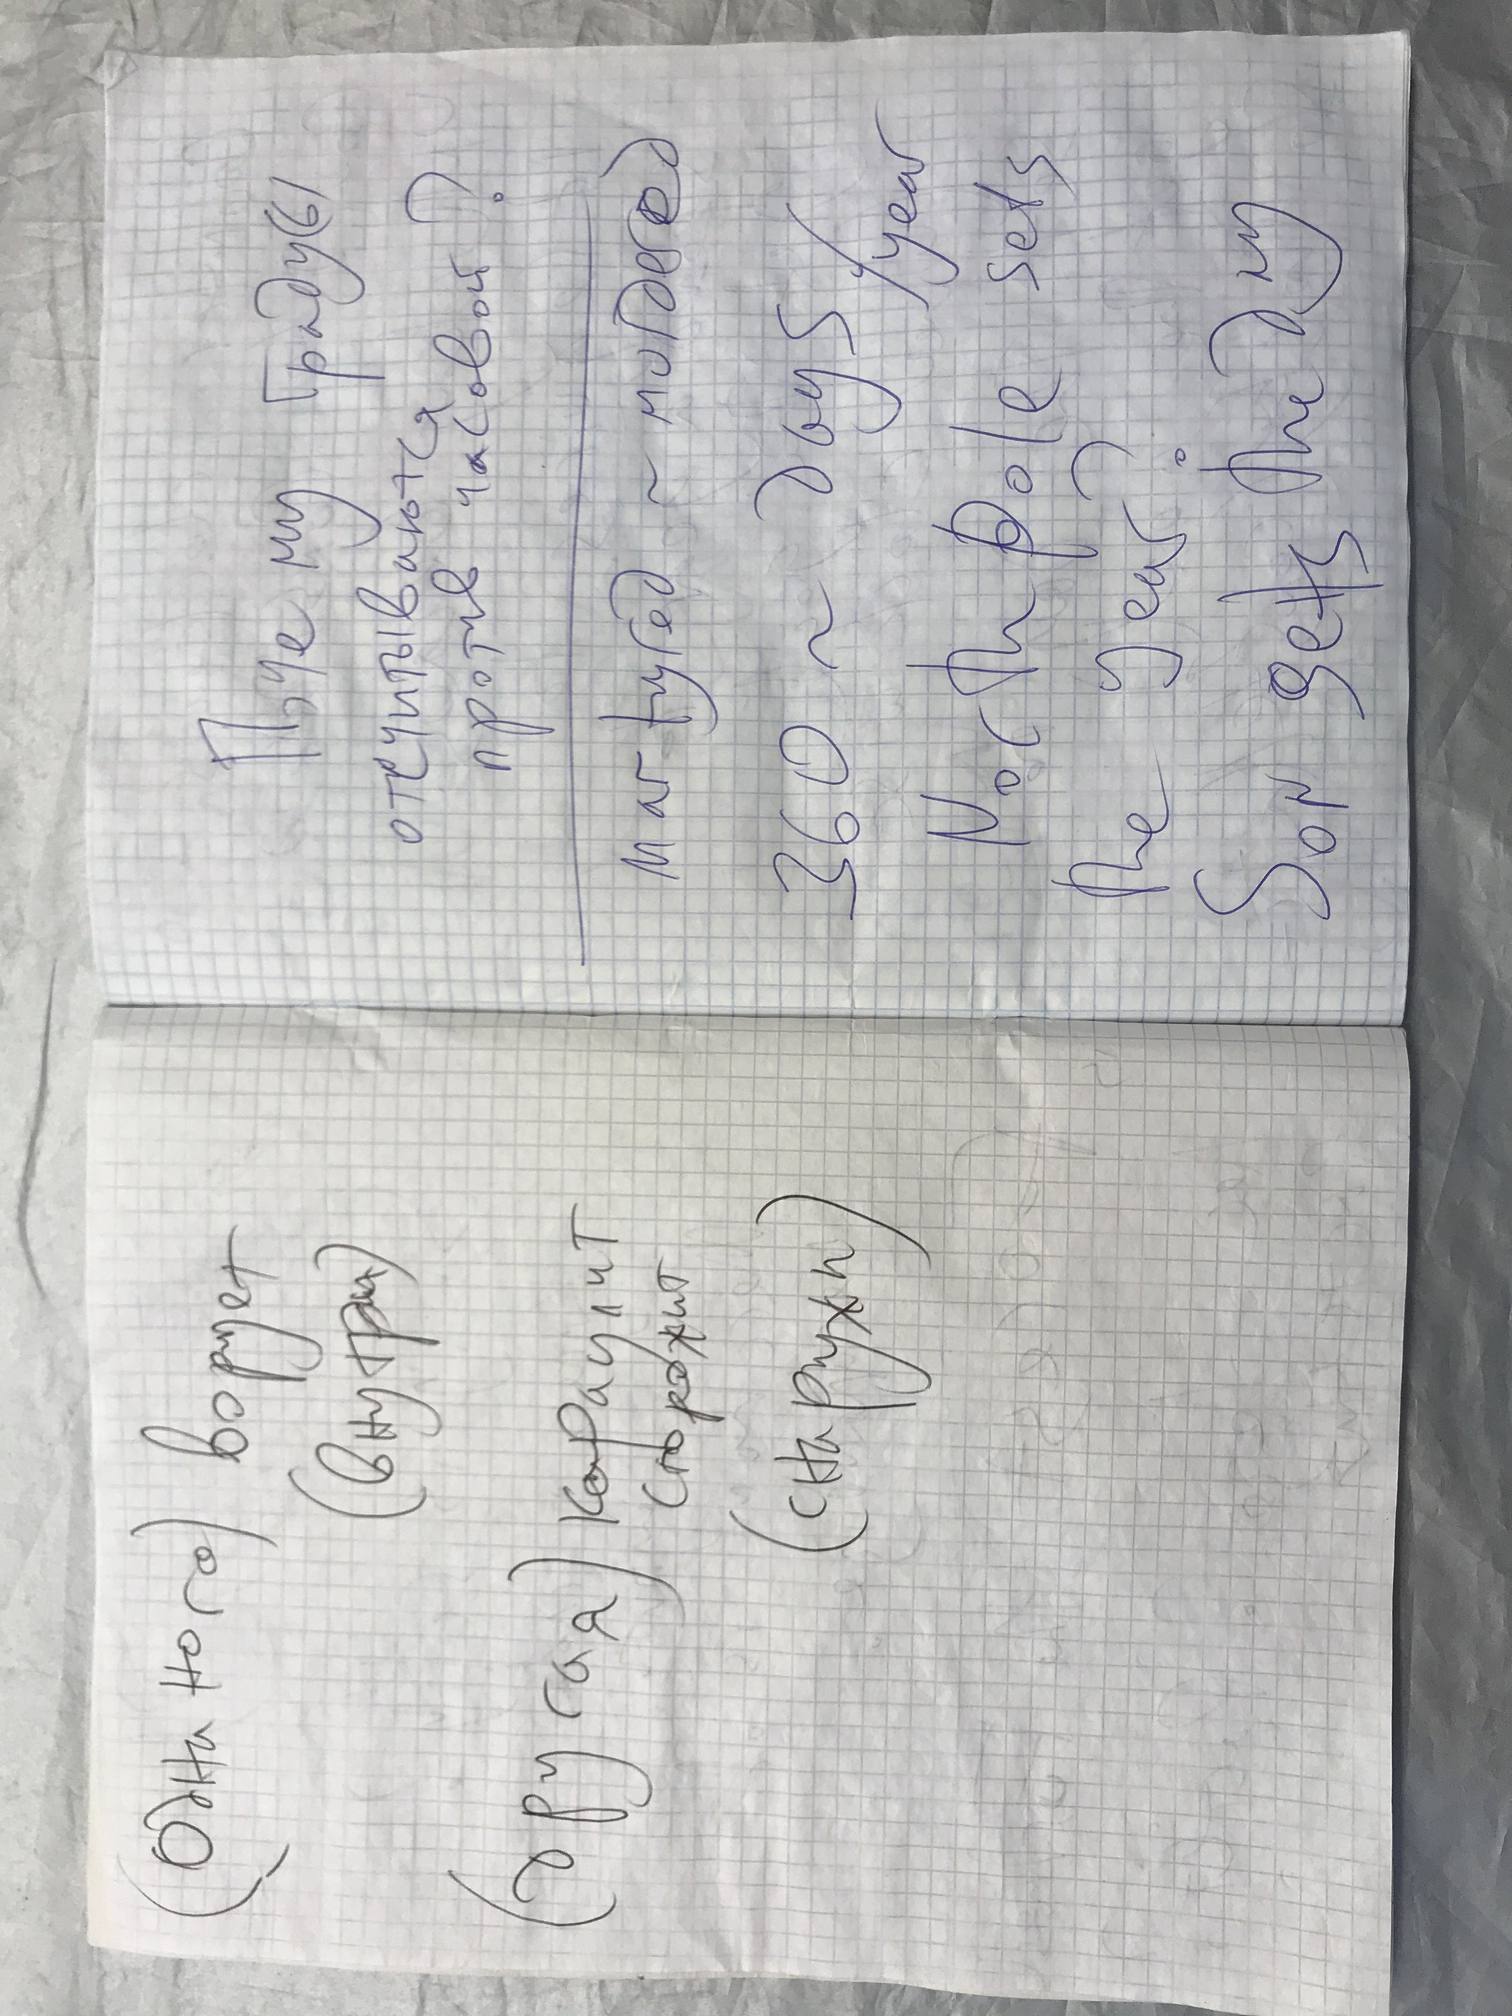 (Одна нога) ворует
(внутри)
(другая) караулит
сторожит
(снаружи)
Почему градусы
отсчитываются
против часовой?
360 ~ days/year
North pole sets
the year?
Son sets the day